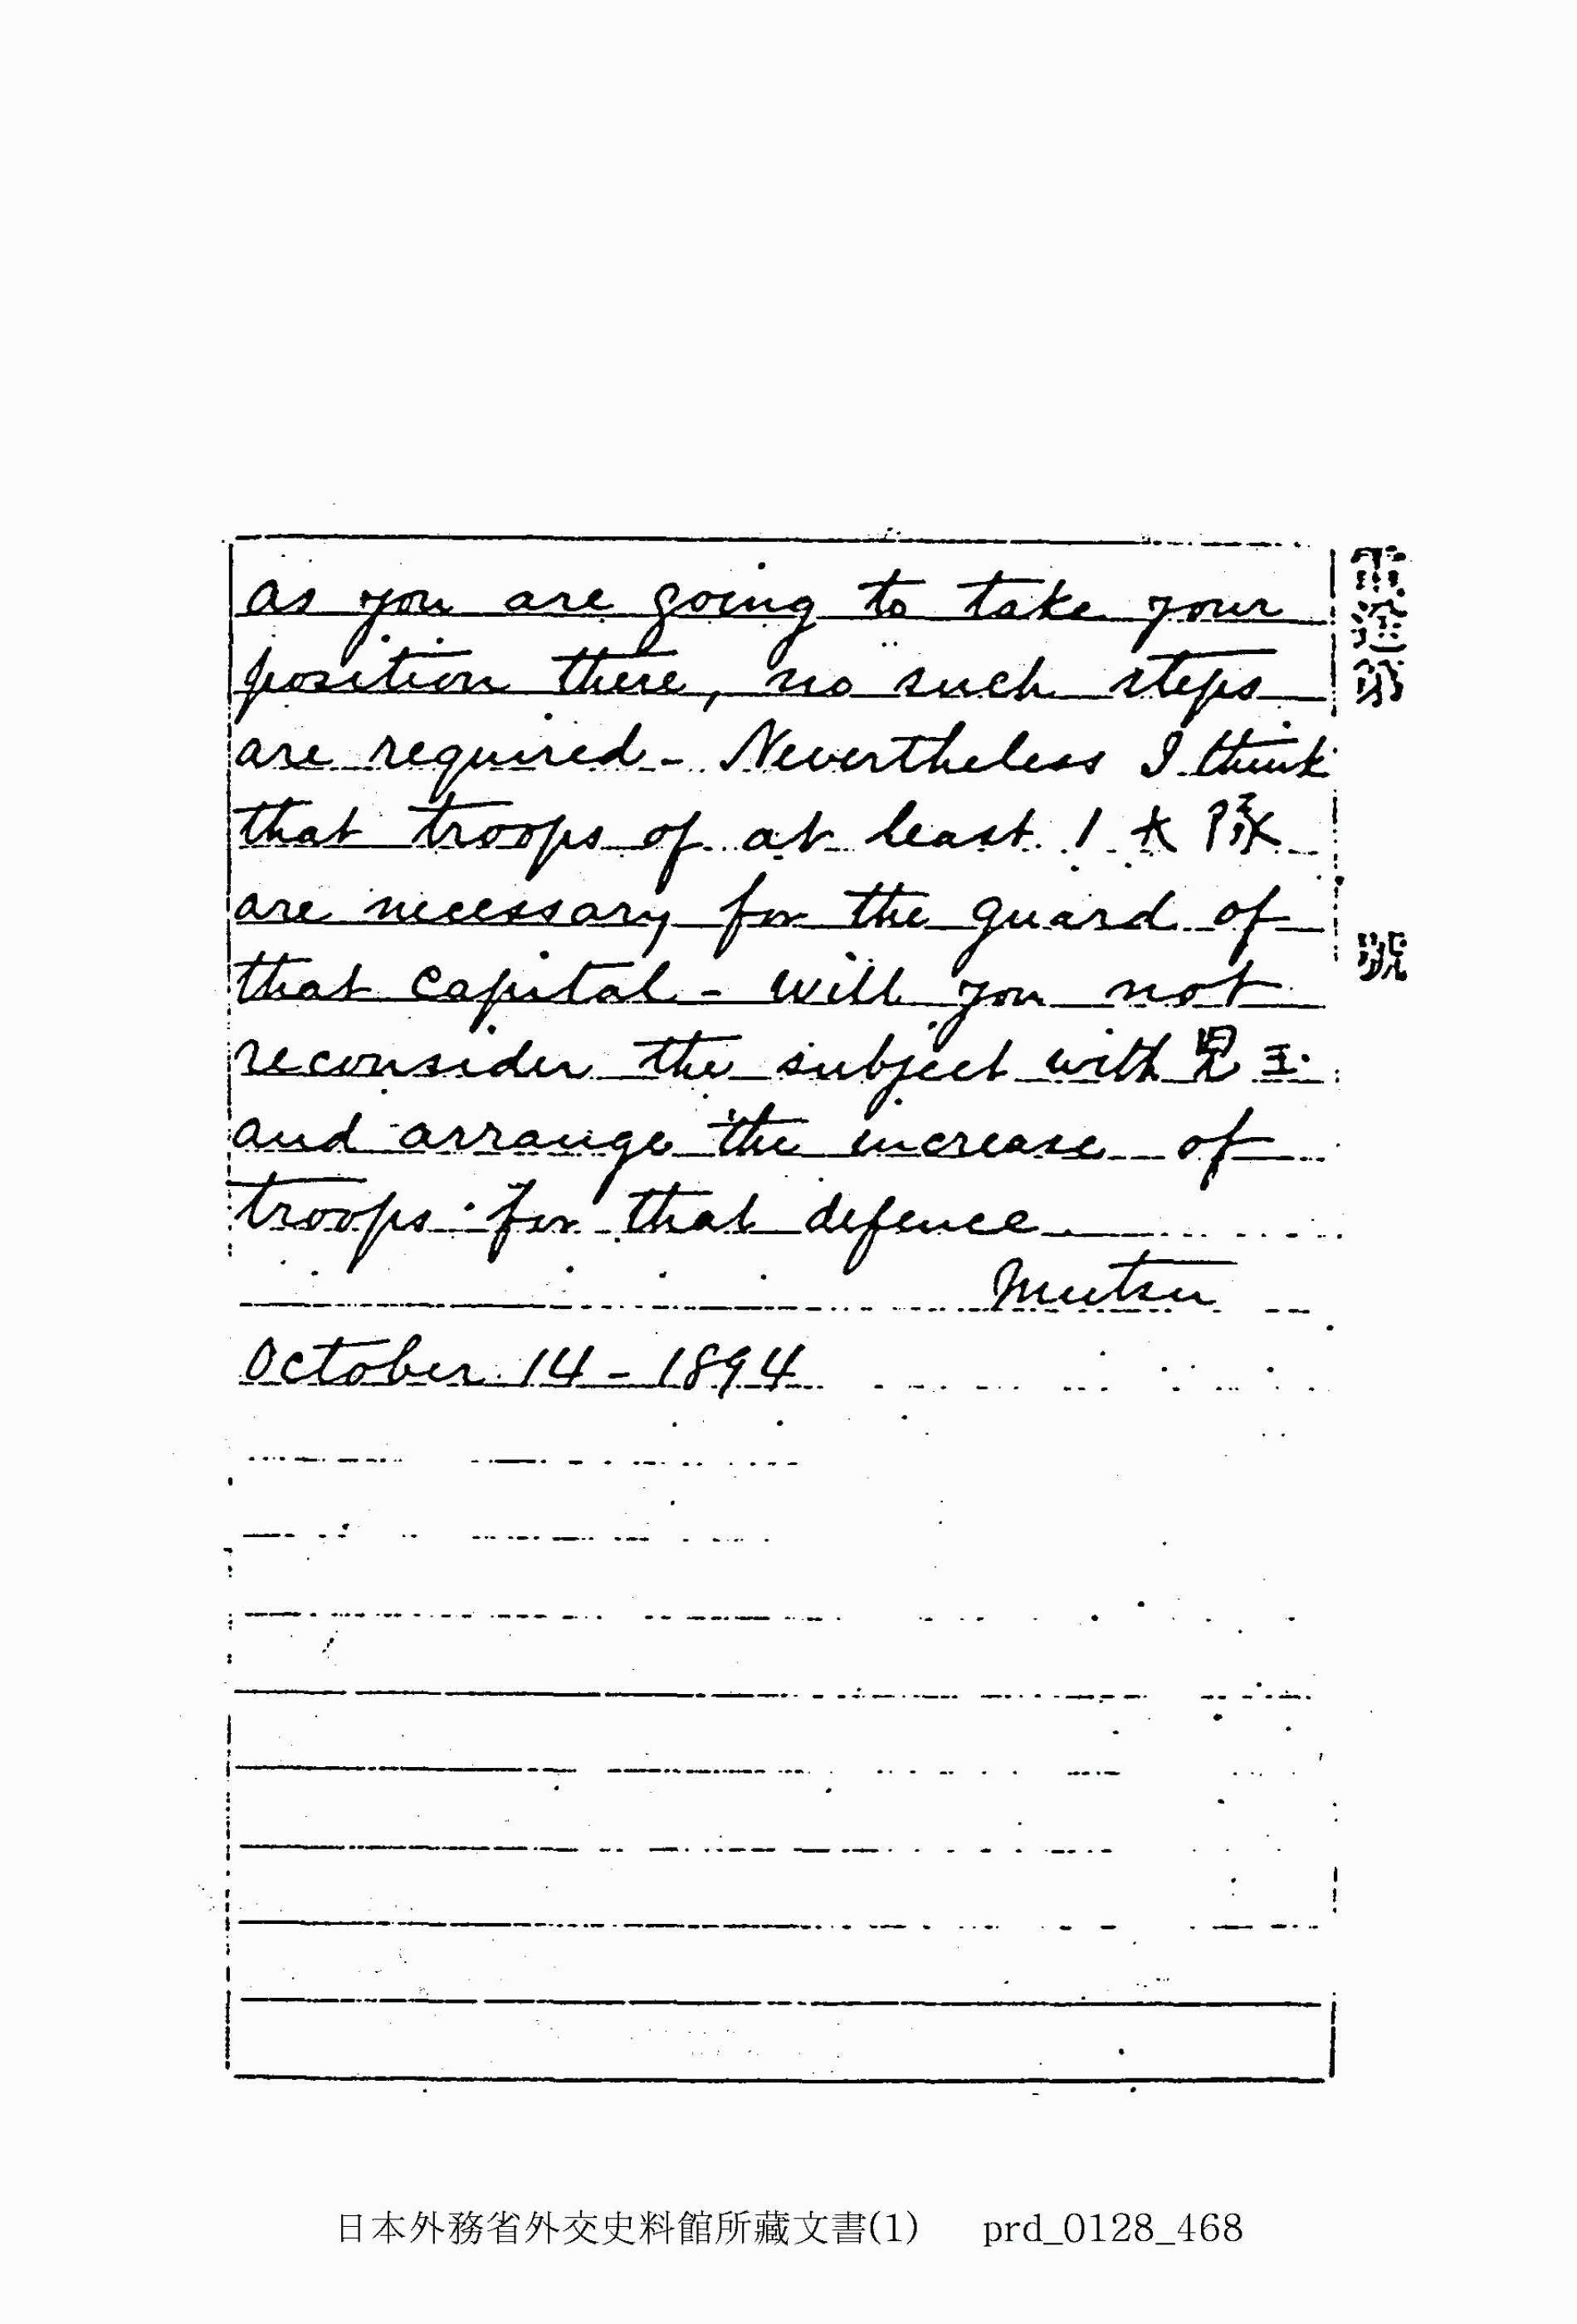 as you are going to take your
position there, no such steps
are required - Nevertheless I think
that troops of at least 1 大隊
are necessary for the guard of
that capital - will you not
reconsider the subject with 児玉
and arrange the increase of
troops for that defence
Mutsu
October 14 - 1894
電送第
號
日本外務省外交史料館所藏文書(1) prd_0128_468